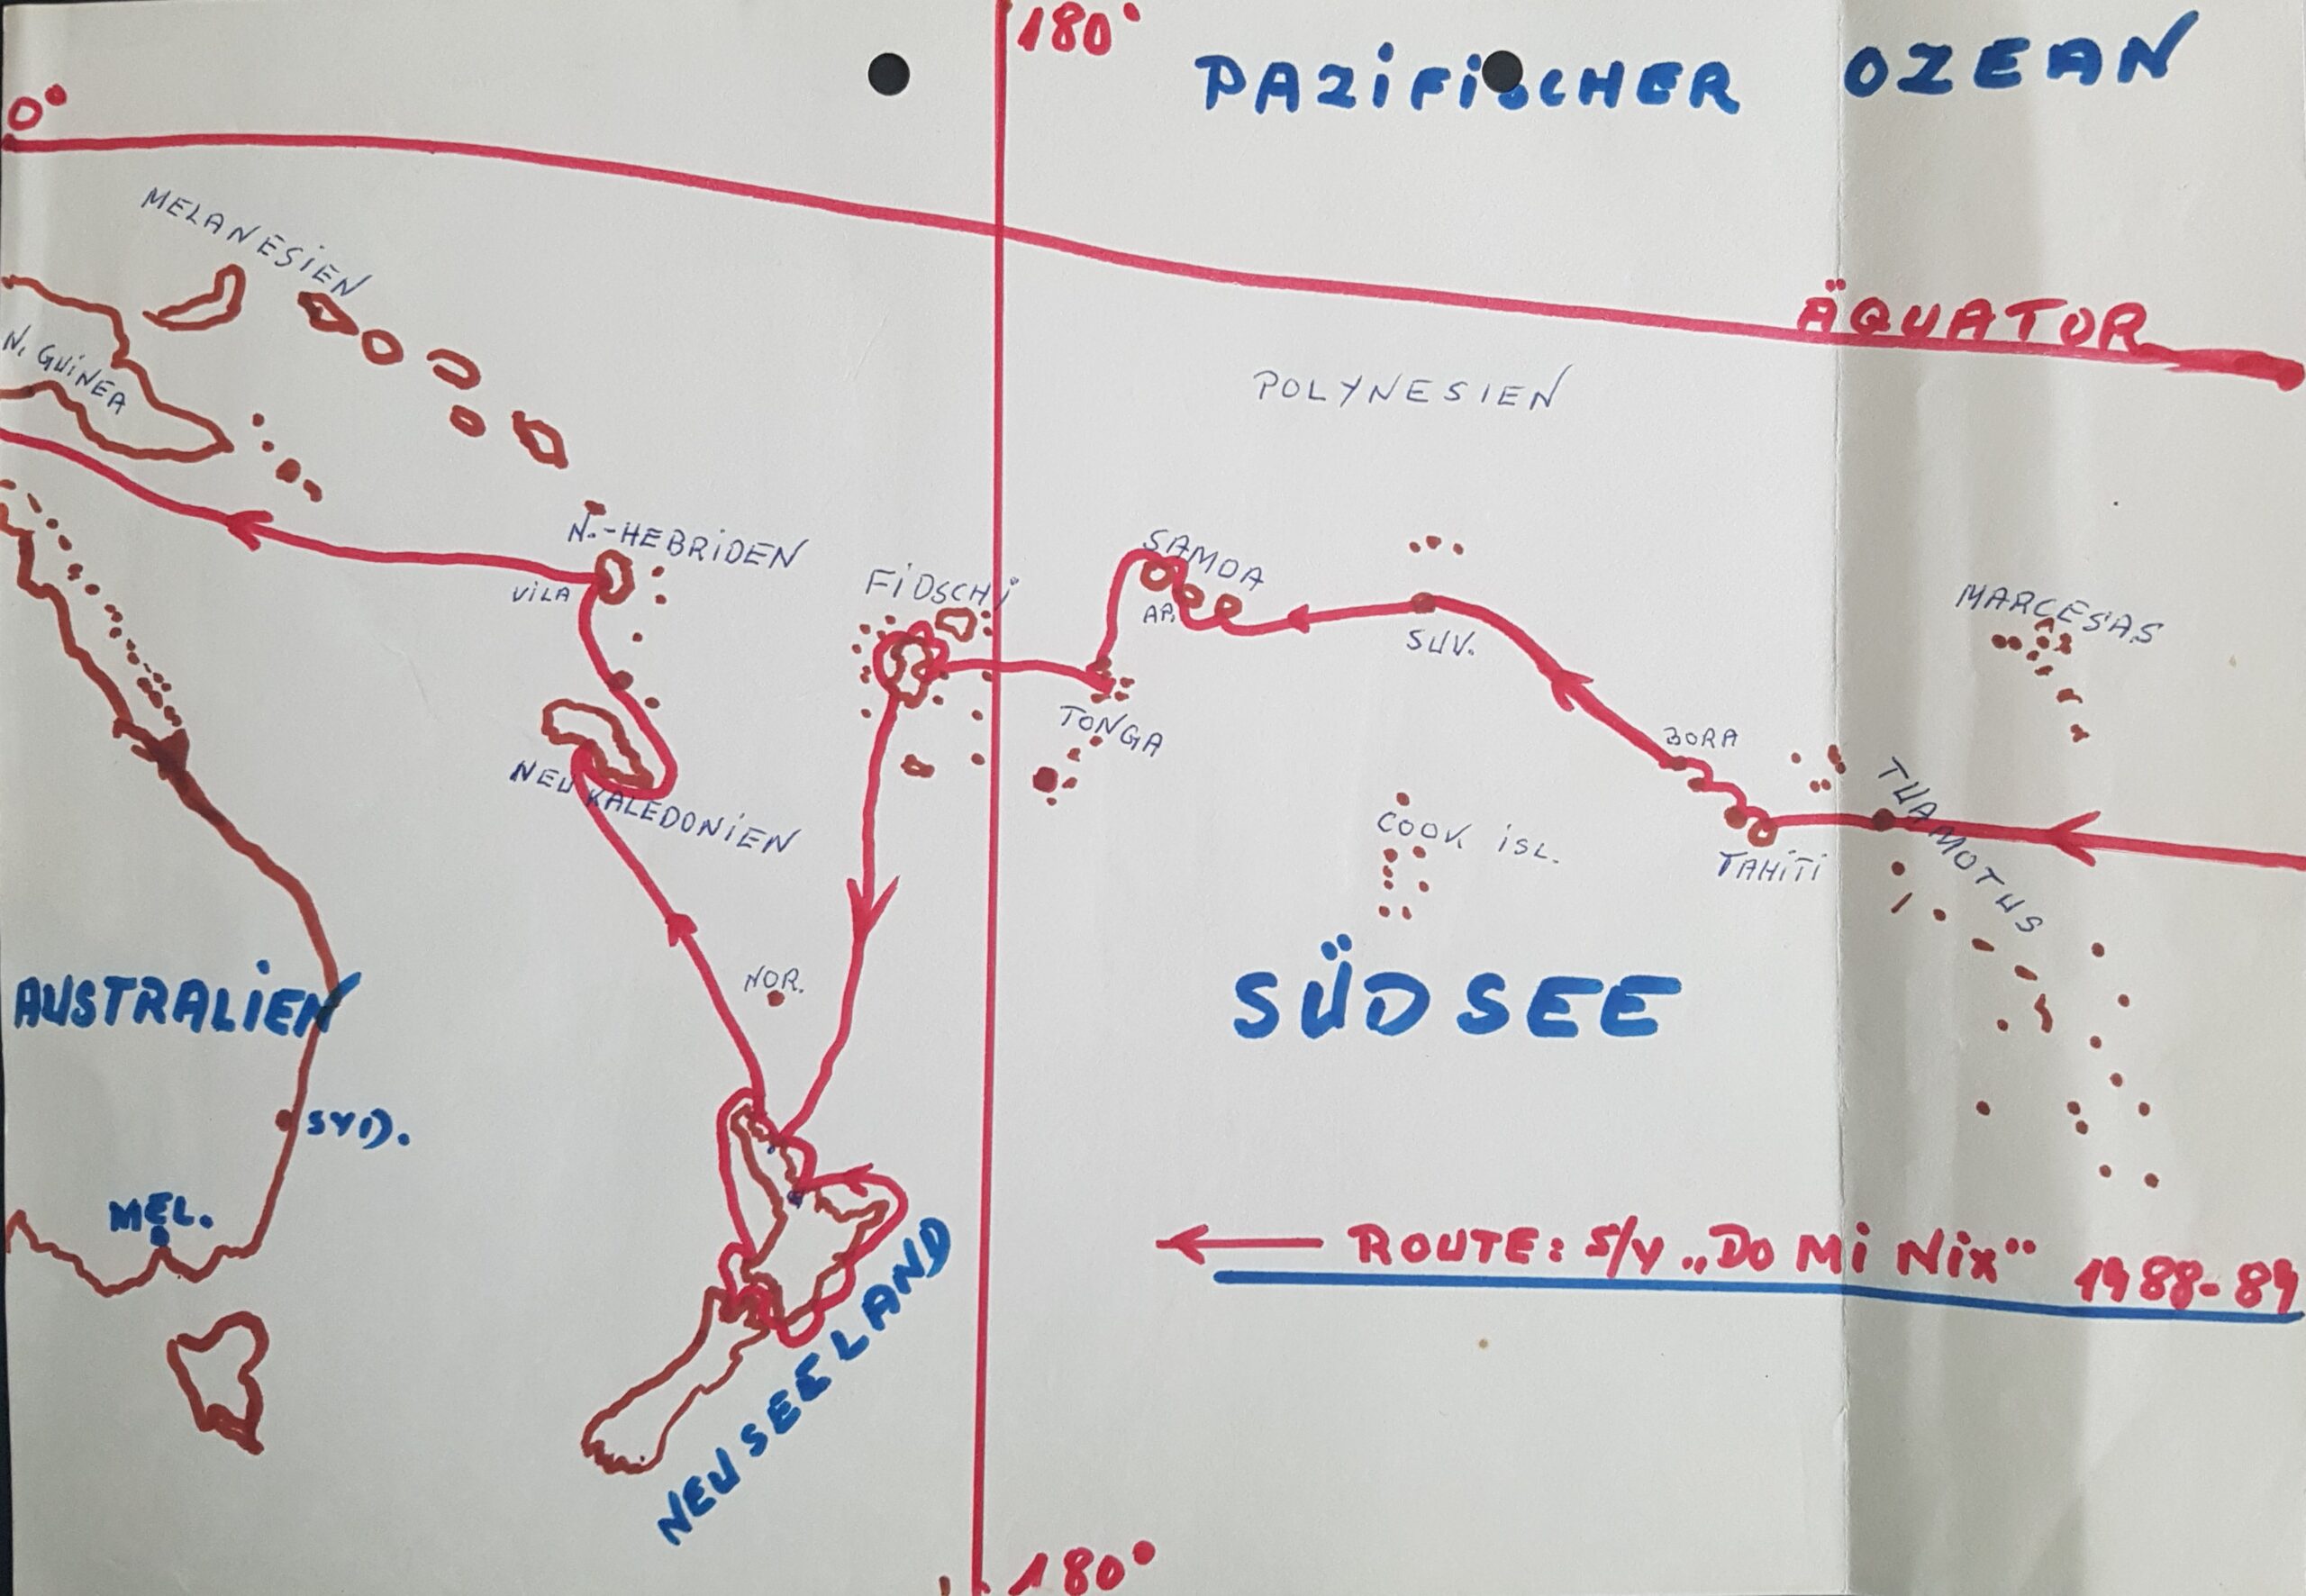 180°
PAZIFISCHER OZEAN
0°
MELANESIEN
ÄQUATOR
N. GUINEA
POLYNESIEN
N.-HEBRIDEN
VILA
FIDSCHI
SAMOA
AP.
SUV.
MARCESAS
TONGA
BORA
NEU KALEDONIEN
TUAMOTUS
COOK ISL.
TAHITI
NOR.
AUSTRALIEN
SÜDSEE
SYD.
MEL.
NEUSEELAND
ROUTE: S/Y „DO Mi Nix" 1988-89
180°